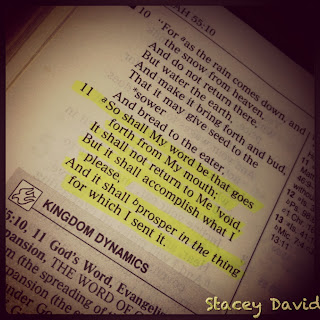 AH 55:10
10 "For as the rain comes down, and
the snow from heaven,
And do not return there,
But water the earth,
And make it bring forth and bud,
That it may give seed to the
sower
And bread to the eater,
11 a So shall My word be that goes
forth from My mouth;
It shall not return to Me void,
But it shall accomplish what I
please,
And it shall bprosper in the thing
for which I sent it.
KINGDOM DYNAMICS
5:10, 11 God's Word, Evangeli
pansion, THE WORD OF
n (the spreading of
Stacey David